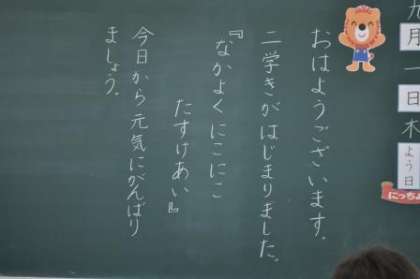 九月一日木よう日
にっちょ
おはようございます。
二学きがはじまりました。
『なかよくにこにこ
たすけあい』
今日から元気にがんばり
ましょう。